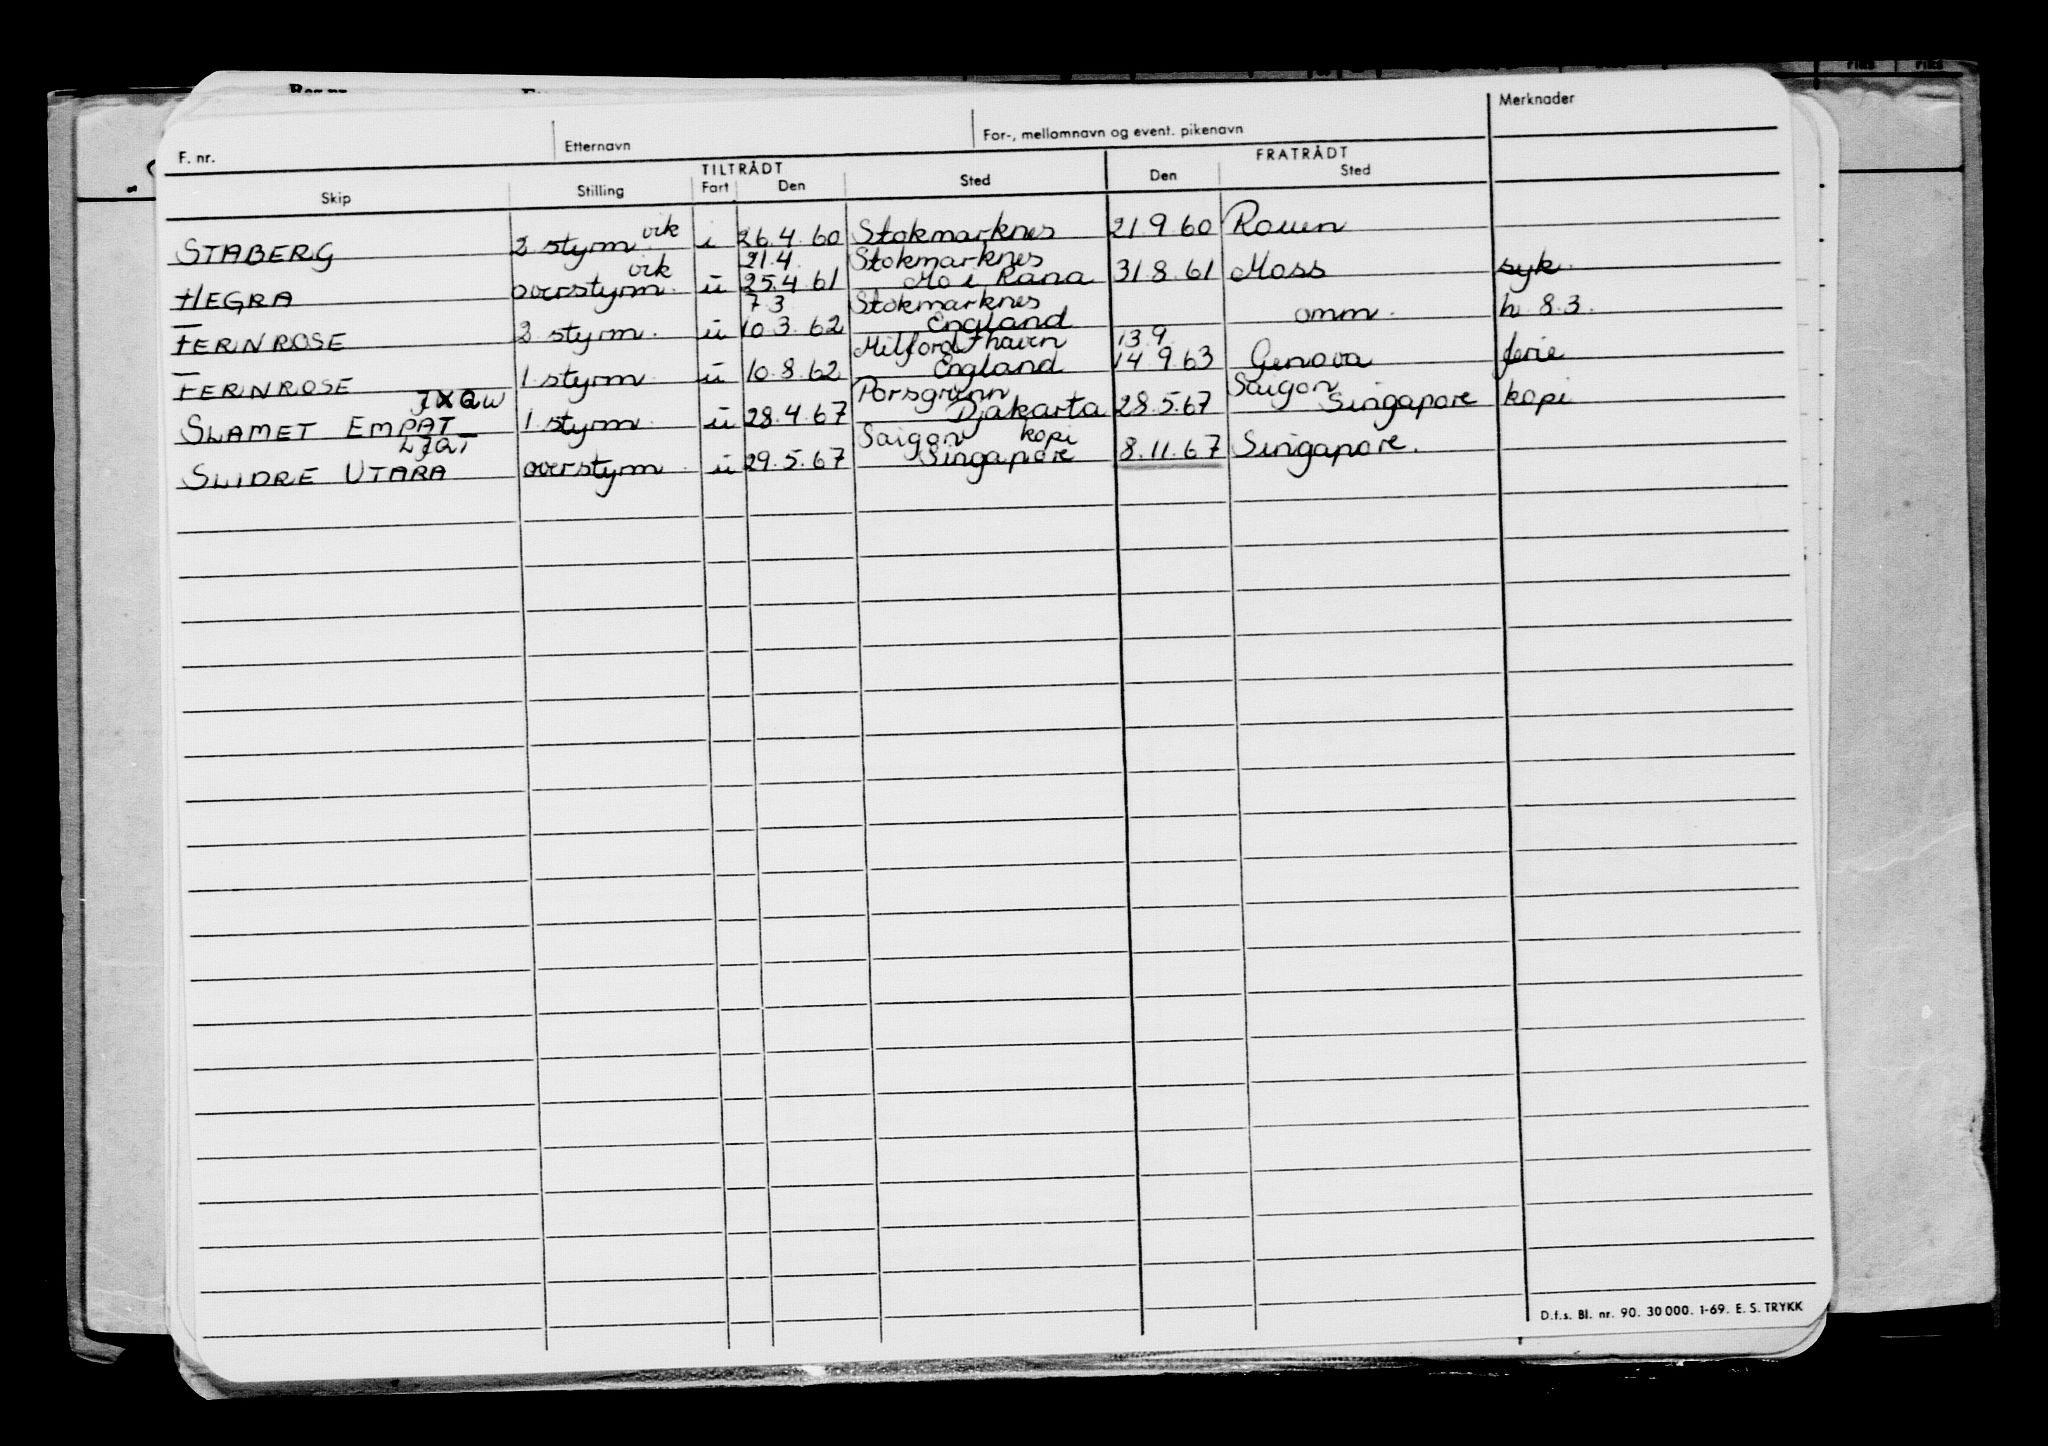 F. nr. Etternavn For-, mellomnavn og event. pikenavn Merknader
TILTRÅDT FRATRÅDT
Skip Stilling Fart Den Sted Den Sted
vik
STABERG 2 styrm i 26.4.60 Stokmarknes 21.9.60 Rouen
vik 21.4. Stokmarknes
HEGRA overstyrm. u 25.4.61 Mo i Rana 31.8.61 Moss syk.
7.3 Stokmarknes
FERNROSE 2 styrm. u 10.3.62 England omm. h 8.3.
Milford haven 13.9.
FERNROSE 1 styrm u 10.8.62 England 14.9.63 Genova ferie
JXQW Porsgrunn Saigon
SLAMET EMPAT 1 styrm. u 28.4.67 Djakarta 28.5.67 Singapore kopi
LJQT Saigon kopi
SLIDRE UTARA overstyrm u 29.5.67 Singapore 8.11.67 Singapore.
D.f.s. Bl. nr. 90. 30 000. 1-69. E. S. TRYKK